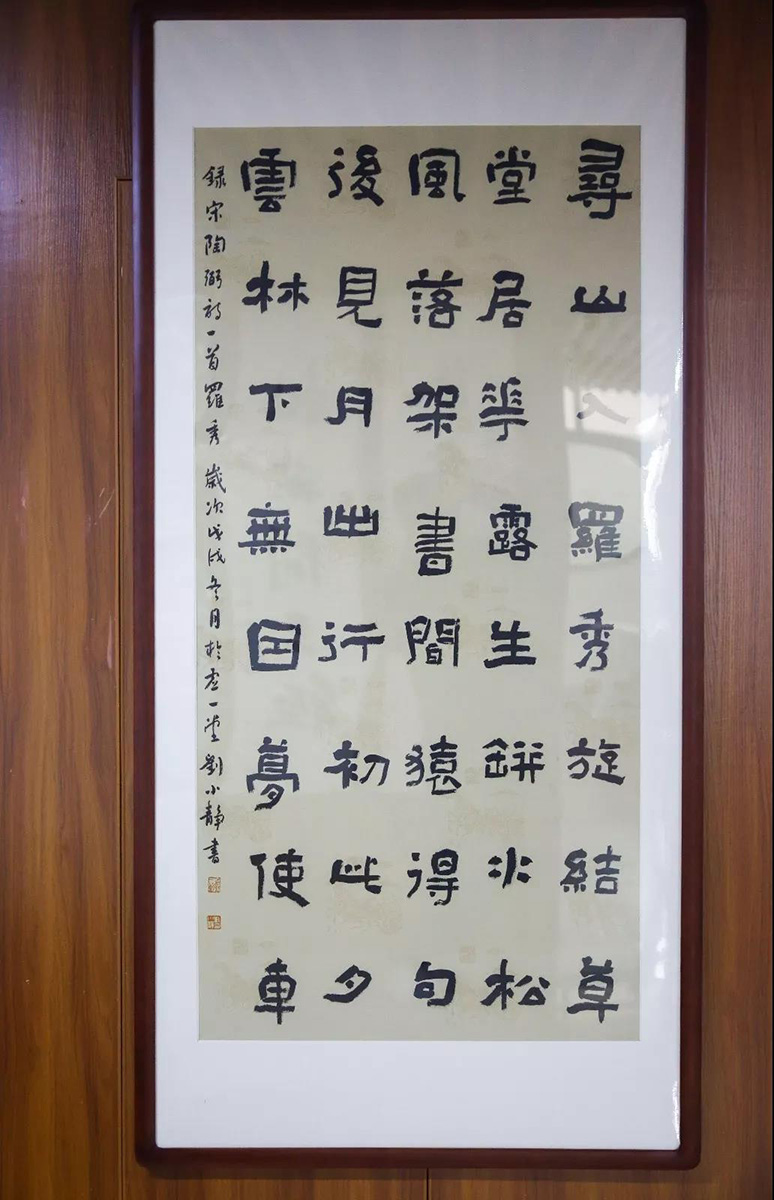 尋山入羅秀旋結草
堂居華露生缾水松
風落架書間猿得句
後見月出行初此夕
雲林下無因夢使車
録宋陶弼詩一首羅秀 歲次戊戌冬月於壺一堂劉小靜書